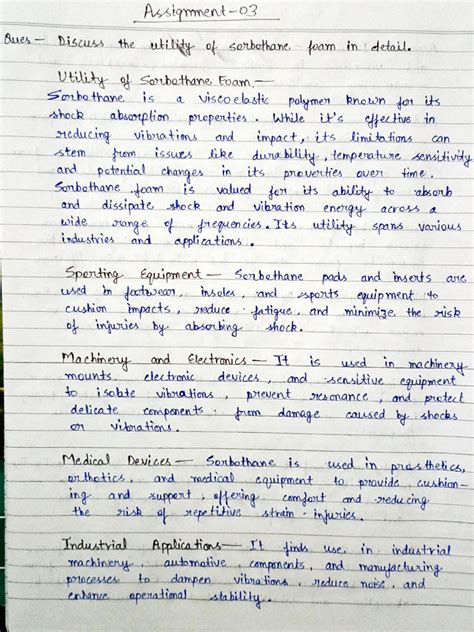 Assignment-03
Ques - Discuss the utility of sorbothane foam in detail.
Utility of Sorbothane Foam. -
Sorbothane is a viscoelastic polymer known for its
shock absorption properties. While it's effective in
reducing vibrations and impact, its limitations can
stem from issues like durability, temperature sensitivity
and potential changes in its properties over time.
Sorbothane foam is valued for its ability to absorb
and dissipate shock and vibration energy across a
wide range of frequencies. Its utility spans various
industries and applications.
Sporting Equipment - Sorbothane pads and inserts are
used in footwear, insoles, and sports equipment to
cushion impacts, reduce fatigue, and minimize the risk
of injuries by absorbing shock.
Machinery and Electronics - It is used in machinery
mounts, electronic devices, and sensitive equipment
to isolate vibrations, prevent resonance, and protect
delicate components from damage caused by shocks
or vibrations.
Medical Devices - Sorbothane is used in prosthetics,
orthotics, and medical equipment to provide cushion-
ing and support, offering comfort and reducing
the risk of repetitive strain injuries.
Industrial Applications - It finds use in industrial
machinery, automotive components, and manufacturing
processes to dampen vibrations, reduce noise, and
enhance operational stability.